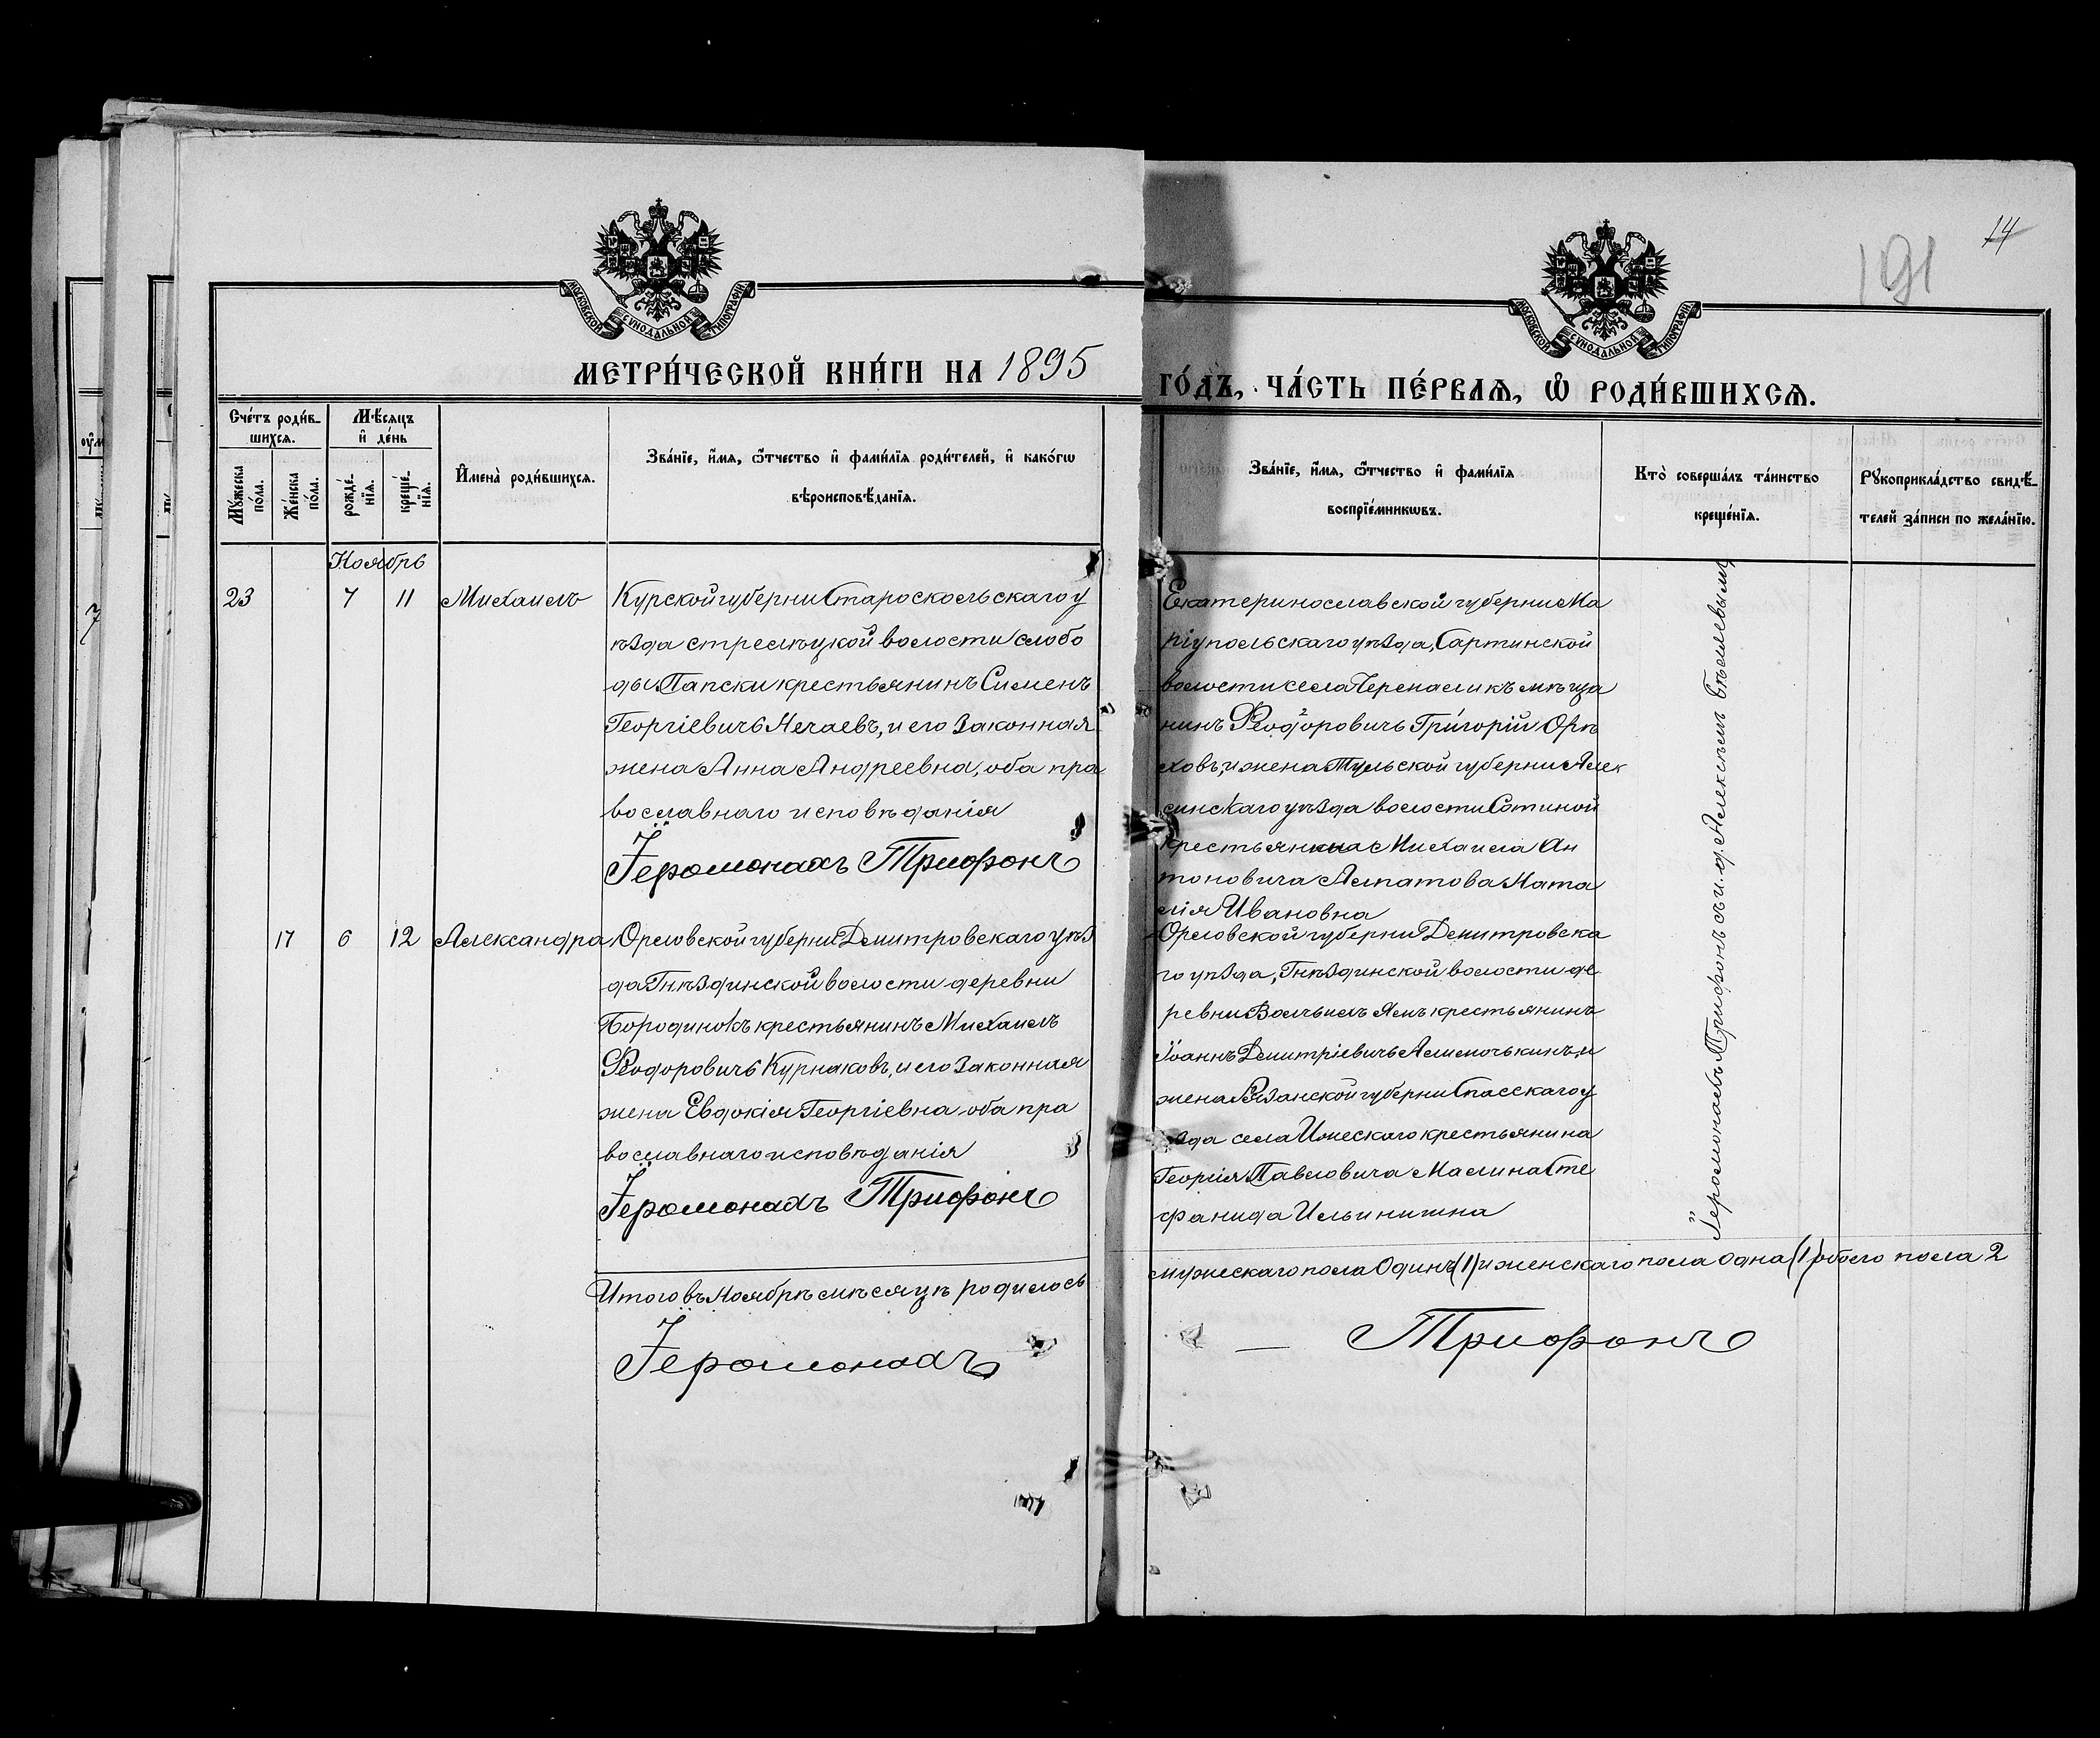 14
191
МОСКОВСКОЙ СѴНОДАЛЬНОЙ ТИПОГРАФІИ
МОСКОВСКОЙ СѴНОДАЛЬНОЙ ТИПОГРАФІИ
МЕТРИ́ЧЕСКОЙ КНИ́ГИ НА 1895
ГО́ДЪ, ЧА́СТЬ ПЕ́РВАЯ, Ѡ҆ РОДИ́ВШИХСѦ.
Сче́тъ роди́в-
шихсѧ.
Мѣ́сяцъ
и҆ де́нь
Мꙋ́жеска
по́ла.
Же́нска
по́ла.
рожде́-
нїѧ.
креще́-
нїѧ.
И҆мена̀ роди́вшихсѧ.
Зва́нїе, и҆́мѧ, ѻ҆́тчество и҆ фами́лїѧ роди́телей, и҆ како́гѡ
вѣроисповѣ́данїѧ.
Зва́нїе, и҆́мѧ, ѻ҆́тчество и҆ фами́лїѧ
воспрїе́мникѡвъ.
Кто̀ соверша́лъ та́инство
креще́нїѧ.
Рꙋкоприкла́дство свидѣ́-
телей за́писи по жела́нїю.
Ноябрь
23 7 11 Михаилъ
Курской губерни Староскольскаго у
ѣзда стрелѣцкой волости слобо
ды Папски крестьянинъ Сименъ
Георгіевичь Нечаевъ, и его законная
жена Анна Андреевна, оба пра
вославнаго исповѣданія
Іеромонахъ Трифонъ
Екатеринославской губерни Ма
ріупольскаго уѣзда, Сартинской
волости села Чермаликъ мѣща
нинъ Ѳеодоровичь Григорій Орѣ
ховъ, и жена Тульской губерни Алек
синскаго уѣзда волости Сотиной
крестьянина Михаила Ан
тоновича Алпатова Ната
лія Ивановна
17 6 12 Александра
Орловской губерни Дмитровскаго уѣз
да Гнѣздинской волости деревни
Бородинокъ крестьянинъ Михаилъ
Ѳеодоровичь Курнаковъ, и его законная
жена Евдокія Георгіевна оба пра
вославнаго исповѣданія
Іеромонахъ Трифонъ
Орловской губерни Дмитровска
го уѣзда, Гнѣздинской волости де
ревни Ямъ крестьянинъ
Іоаннъ Дмитріевичь и
жена Рязанской губерни Спасскаго у
ѣзда села Ижескаго крестьянина
Георгія Павловича Маслина Сте
фанида Ильинишна
Іеромонахъ Трифонъ съ и. д.
Итого въ Ноябрѣ мѣсяцѣ родилось
мужескаго пола Одинъ (1) и женскаго пола Одна (1) обоего пола 2
Іеромонахъ — Трифонъ
7